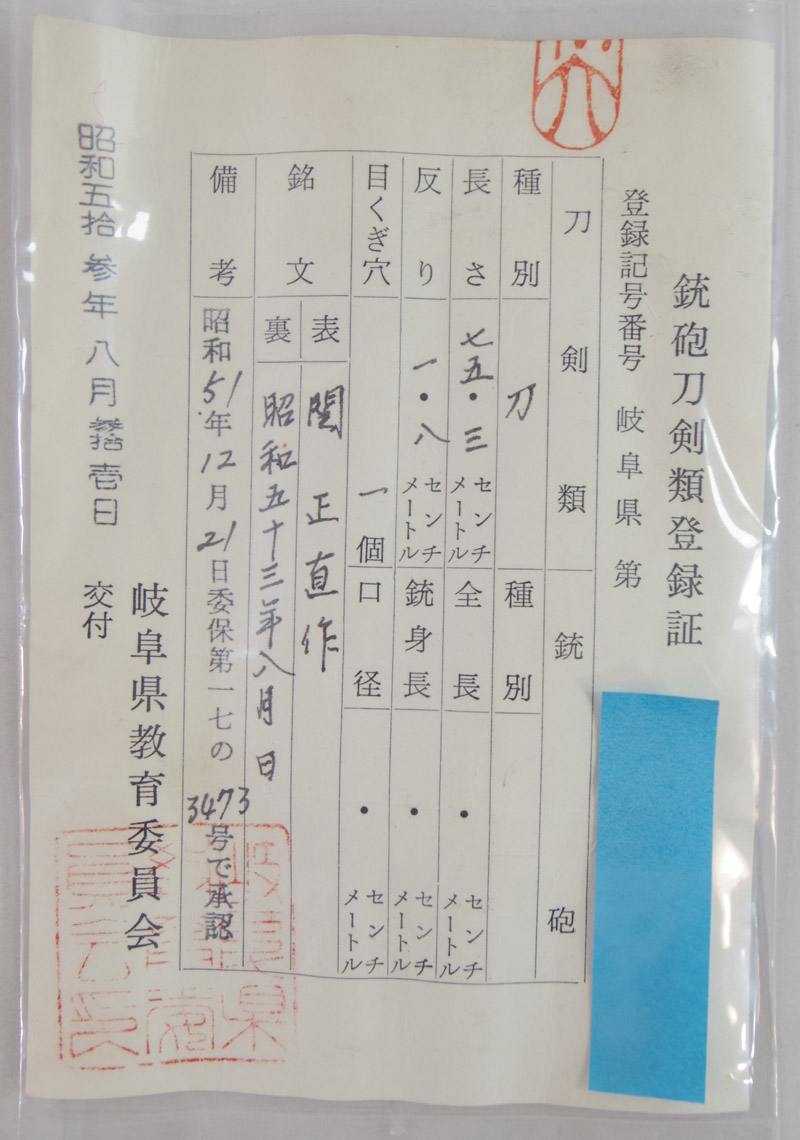 銃砲刀剣類登録証
登録記号番号 岐阜県 第
刀剣類
銃砲
種別 刀
長さ 七五・三 センチメートル
反り 一・八 センチメートル
目くぎ穴 一個
銘文
表 関 正直作
裏 昭和五十三年八月 日
備考 昭和51年12月21日委保第一七の3473号で承認
種別
全長 ・ センチメートル
銃身長 ・ センチメートル
口径 ・ センチメートル
昭和五拾参年八月参拾壱日
交付
岐阜県教育委員会